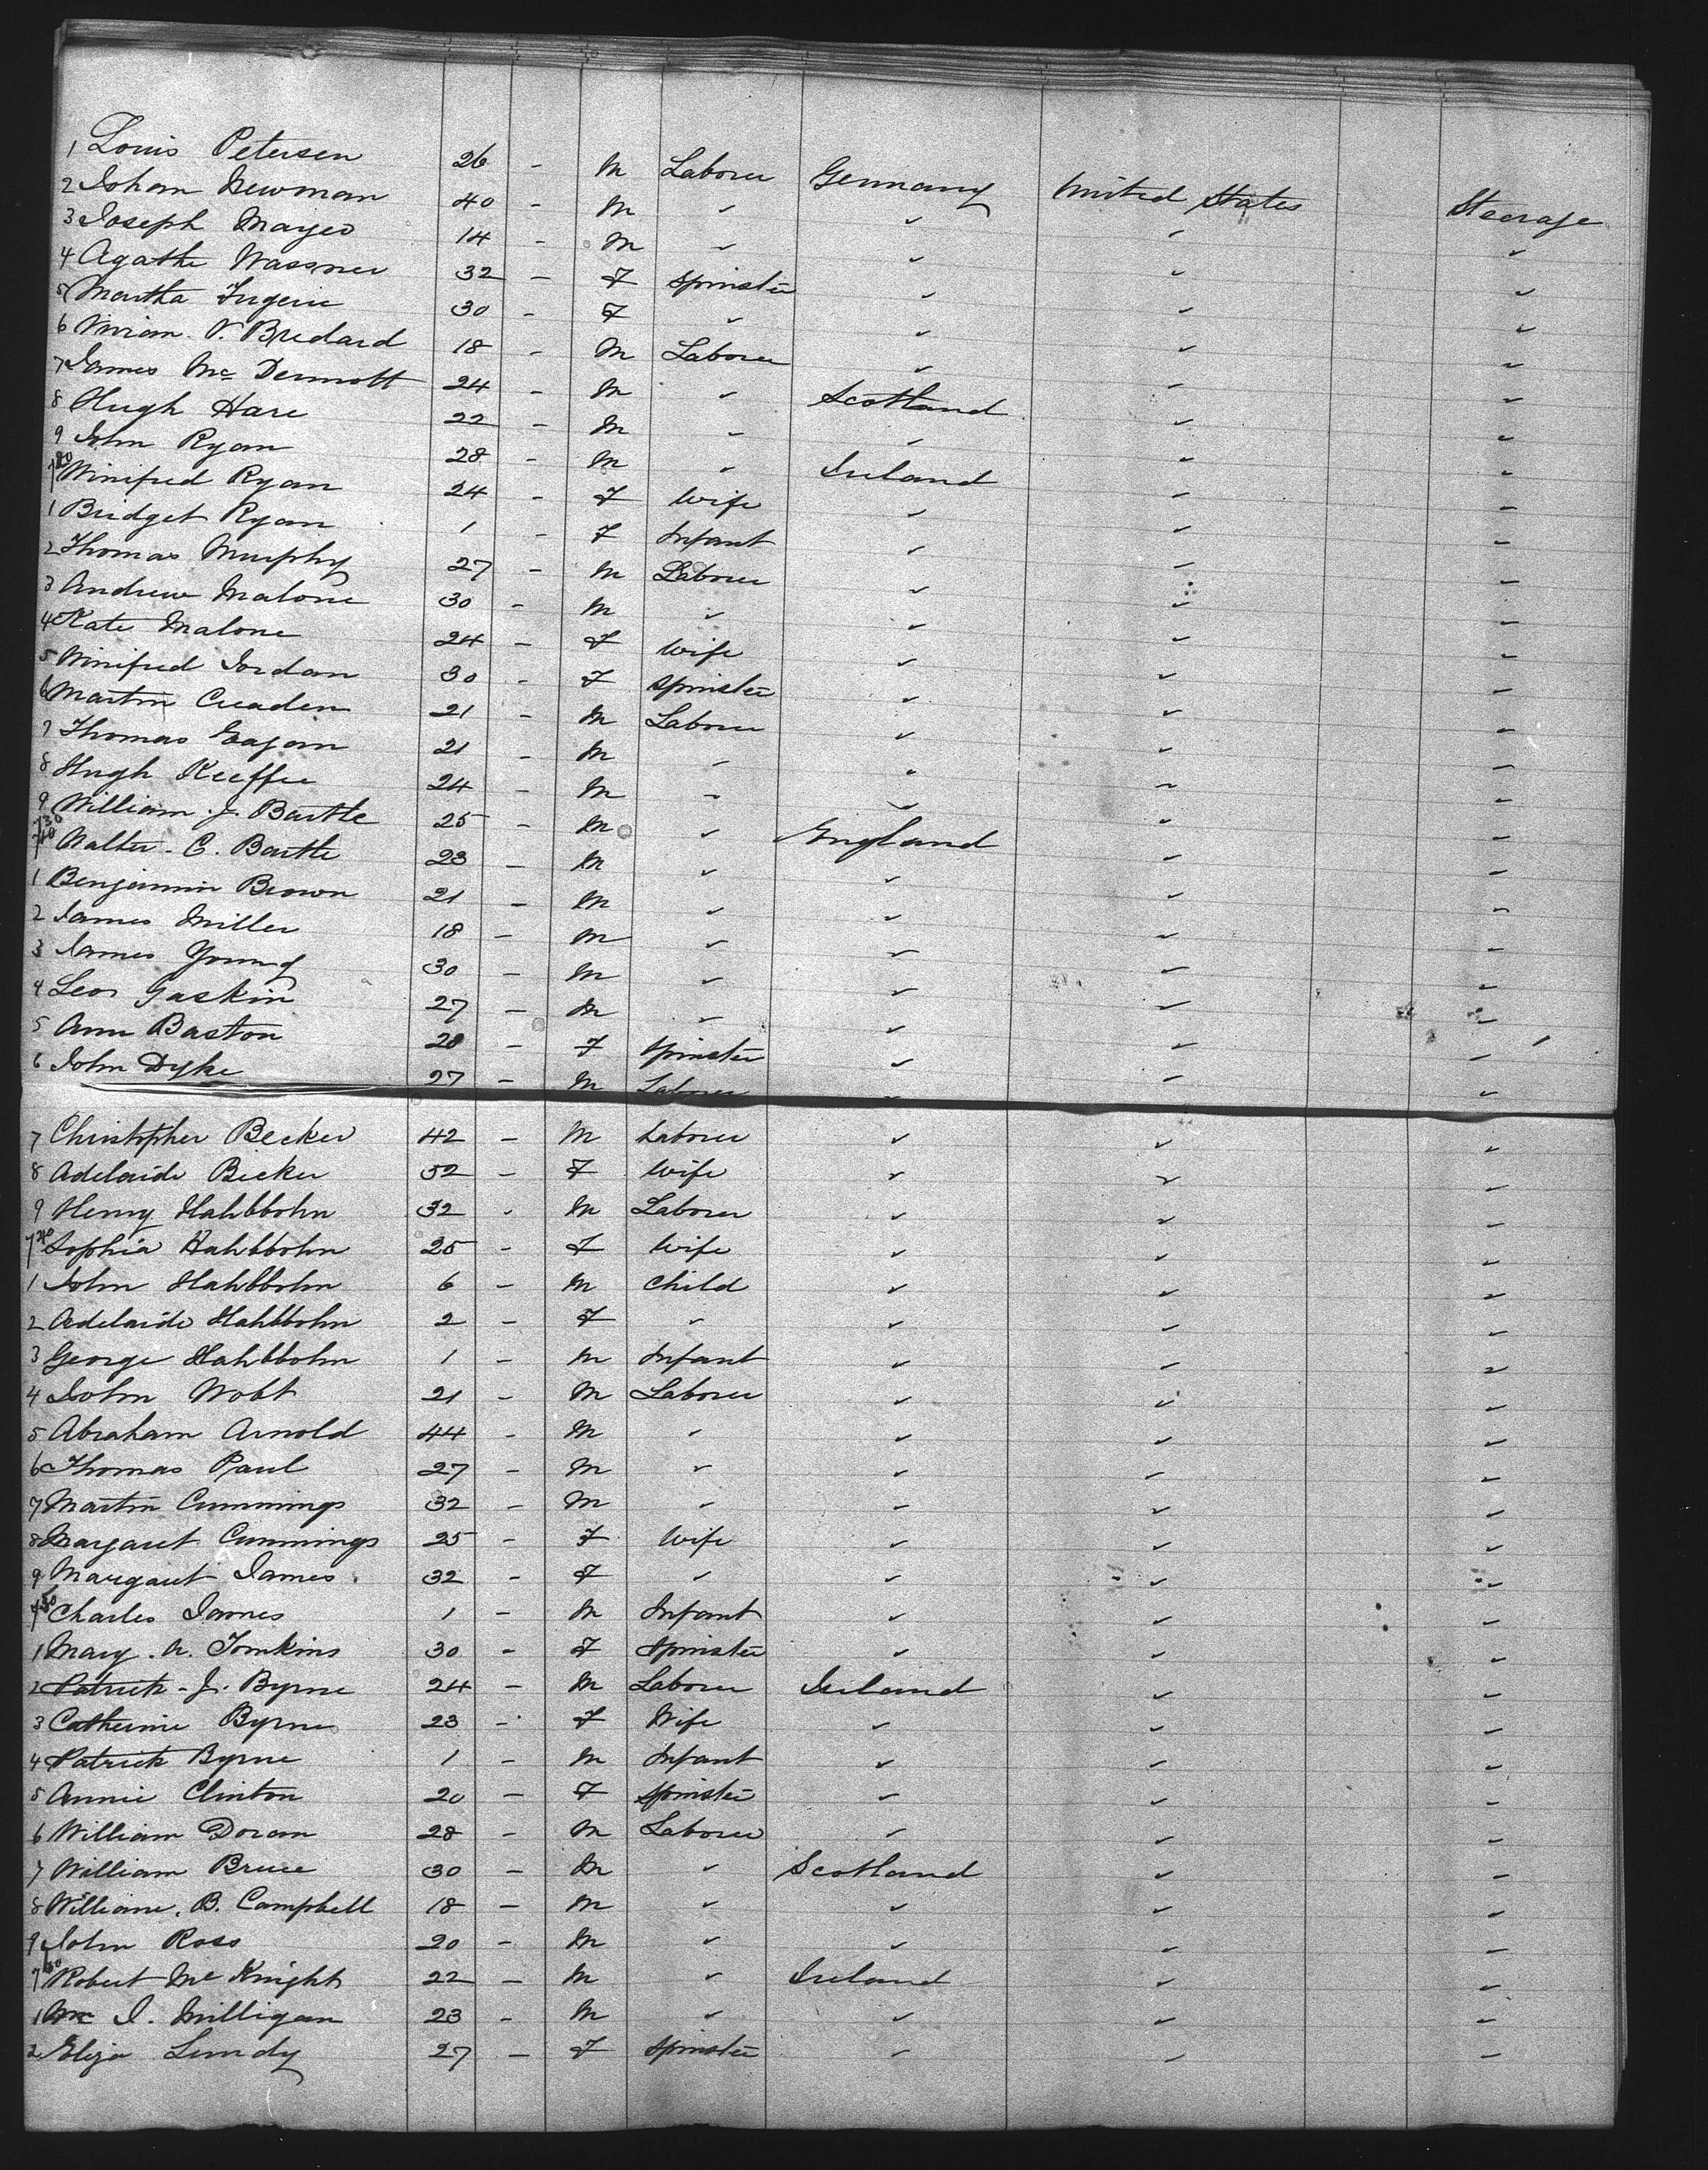 1 Louis Petersen 26 - M Laborer Germany United States Steerage
2 Johan Newman 40 - M " " " "
3 Joseph Mayer 14 - M " " " "
4 Agathe Wassmer 32 - F Spinster " " "
5 Martha 30 - F " " " "
6 V. Bredard 18 - M Laborer " " "
7 James McDermott 24 - M " Scotland " "
8 Hugh Hare 22 - M " " " "
9 John Ryan 28 - M " Ireland " "
720 Winifred Ryan 24 - F Wife " " "
1 Bridget Ryan 1 - F Infant " " "
2 Thomas Murphy 27 - M Laborer " " "
3 Andrew Malone 30 - M " " " "
4 Kate Malone 24 - F Wife " " "
5 Winifred Jordan 30 - F Spinster " " "
6 Martin Creaden 21 - M Laborer " " "
7 Thomas Eagan 21 - M " " " "
8 Hugh Keeffee 24 - M " " " "
9 William J. Bartle 25 - M " England " "
730 Walter. C. Bartle 23 - M " " " "
1 Benjamin Brown 21 - M " " " "
2 James Miller 18 - M " " " "
3 James Young 30 - M " " " "
4 Leon Gaskin 27 - M " " " "
5 Ann Baston 28 - F Spinster " " "
6 John Dyke 27 - M Laborer " " "
7 Christopher Becker 42 - M Laborer " " "
8 Adelaide Becker 52 - F Wife " " "
9 Henry Hahbbohn 32 - M Laborer " " "
740 Sophia Hahbbohn 25 - F Wife " " "
1 John Hahbbohn 6 - M Child " " "
2 Adelaide Hahbbohn 2 - F " " " "
3 George Hahbbohn 1 - M Infant " " "
4 John Wobt 21 - M Laborer " " "
5 Abraham Arnold 44 - M " " " "
6 Thomas Paul 27 - M " " " "
7 Martin Cummings 32 - M " " " "
8 Margaret Cummings 25 - F Wife " " "
9 Margaret James 32 - F " " " "
750 Charles James 1 - M Infant " " "
1 Mary. A. Tomkins 30 - F Spinster " " "
2 Patrick - J. Byrne 24 - M Laborer Ireland " "
3 Catherine Byrne 23 - F Wife " " "
4 Patrick Byrne 1 - M Infant " " "
5 Annie Clinton 20 - F Spinster " " "
6 William Doran 28 - M Laborer " " "
7 William Bruce 30 - M " Scotland " "
8 William. B. Campbell 18 - M " " " "
9 John Ross 20 - M " " " "
760 Robert McKnight 22 - M " Ireland " "
1 Wm J. Milligan 23 - M " " " "
2 Eliza Lundy 27 - F Spinster " " "